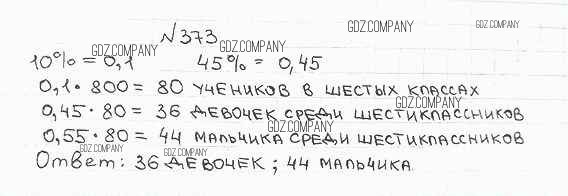 №373
GDZ.COMPANY
GDZ.COMPANY
GDZ.COMPANY
GDZ.COMPANY
10% = 0,1 45% = 0,45
0,1 · 800 = 80 учеников в шестых классах
GDZ.COMPANY
0,45 · 80 = 36 девочек среди шестиклассников
GDZ.COMPANY
0,55 · 80 = 44 мальчика среди шестиклассников
GDZ.COMPANY
GDZ.COMPANY
Ответ: 36 девочек; 44 мальчика.